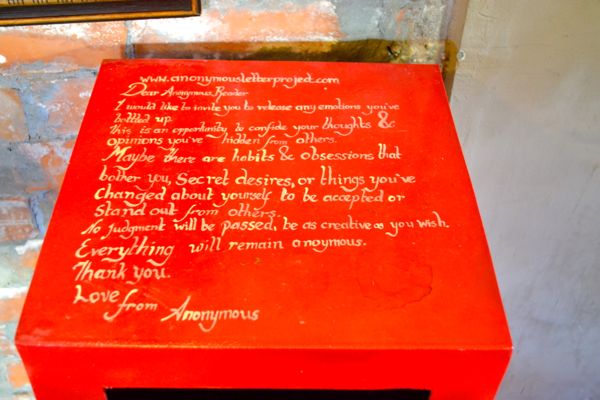 www.anonymousletterproject.com
Dear Anonymous Reader
I would like to invite you to release any emotions you've
bottled up.
This is an opportunity to confide your thoughts &
opinions you've hidden from others.
Maybe there are habits & obsessions that
bother you, Secret desires, or things you've
changed about yourself to be accepted or
Stand out from others.
No judgment will be passed, be as creative as you wish.
Everything will remain anoymous.
Thank you.
Love from Anonymous